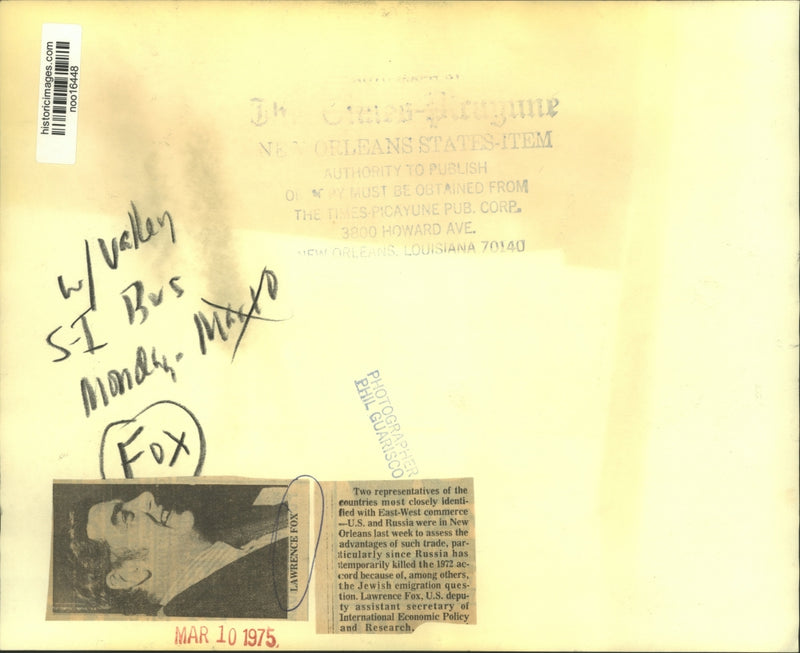 historicimages.com
noo16448
The Times-Picayune
NEW ORLEANS STATES-ITEM
AUTHORITY TO PUBLISH
MUST BE OBTAINED FROM
THE TIMES-PICAYUNE PUB. CORP.
3800 HOWARD AVE.
NEW ORLEANS, LOUISIANA 70140
w/ Valley
S-I Bus
Monday-
FOX
PHOTOGRAPHER
PHIL GUARISCO
LAWRENCE FOX
MAR 10 1975
Two representatives of the
countries most closely identi-
fied with East-West commerce
—U.S. and Russia were in New
Orleans last week to assess the
advantages of such trade, par-
ticularly since Russia has
temporarily killed the 1972 ac-
cord because of, among others,
the Jewish emigration ques-
tion. Lawrence Fox, U.S. depu-
ty assistant secretary of
International Economic Policy
and Research,